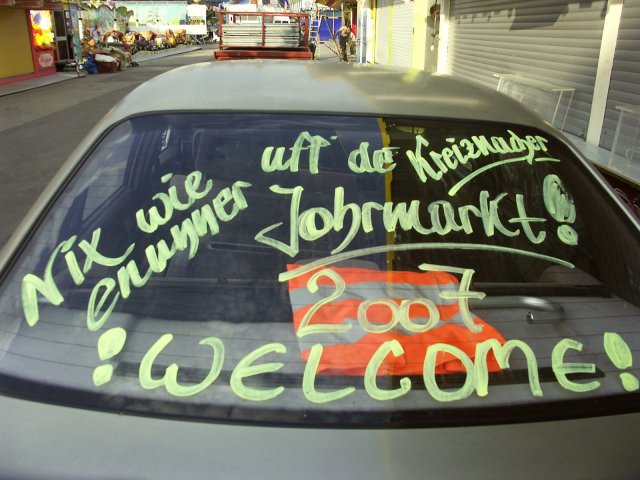 Nix wie
enunner
uff de Kreiznacher
Johrmarkt!
2007
! WELCOME!